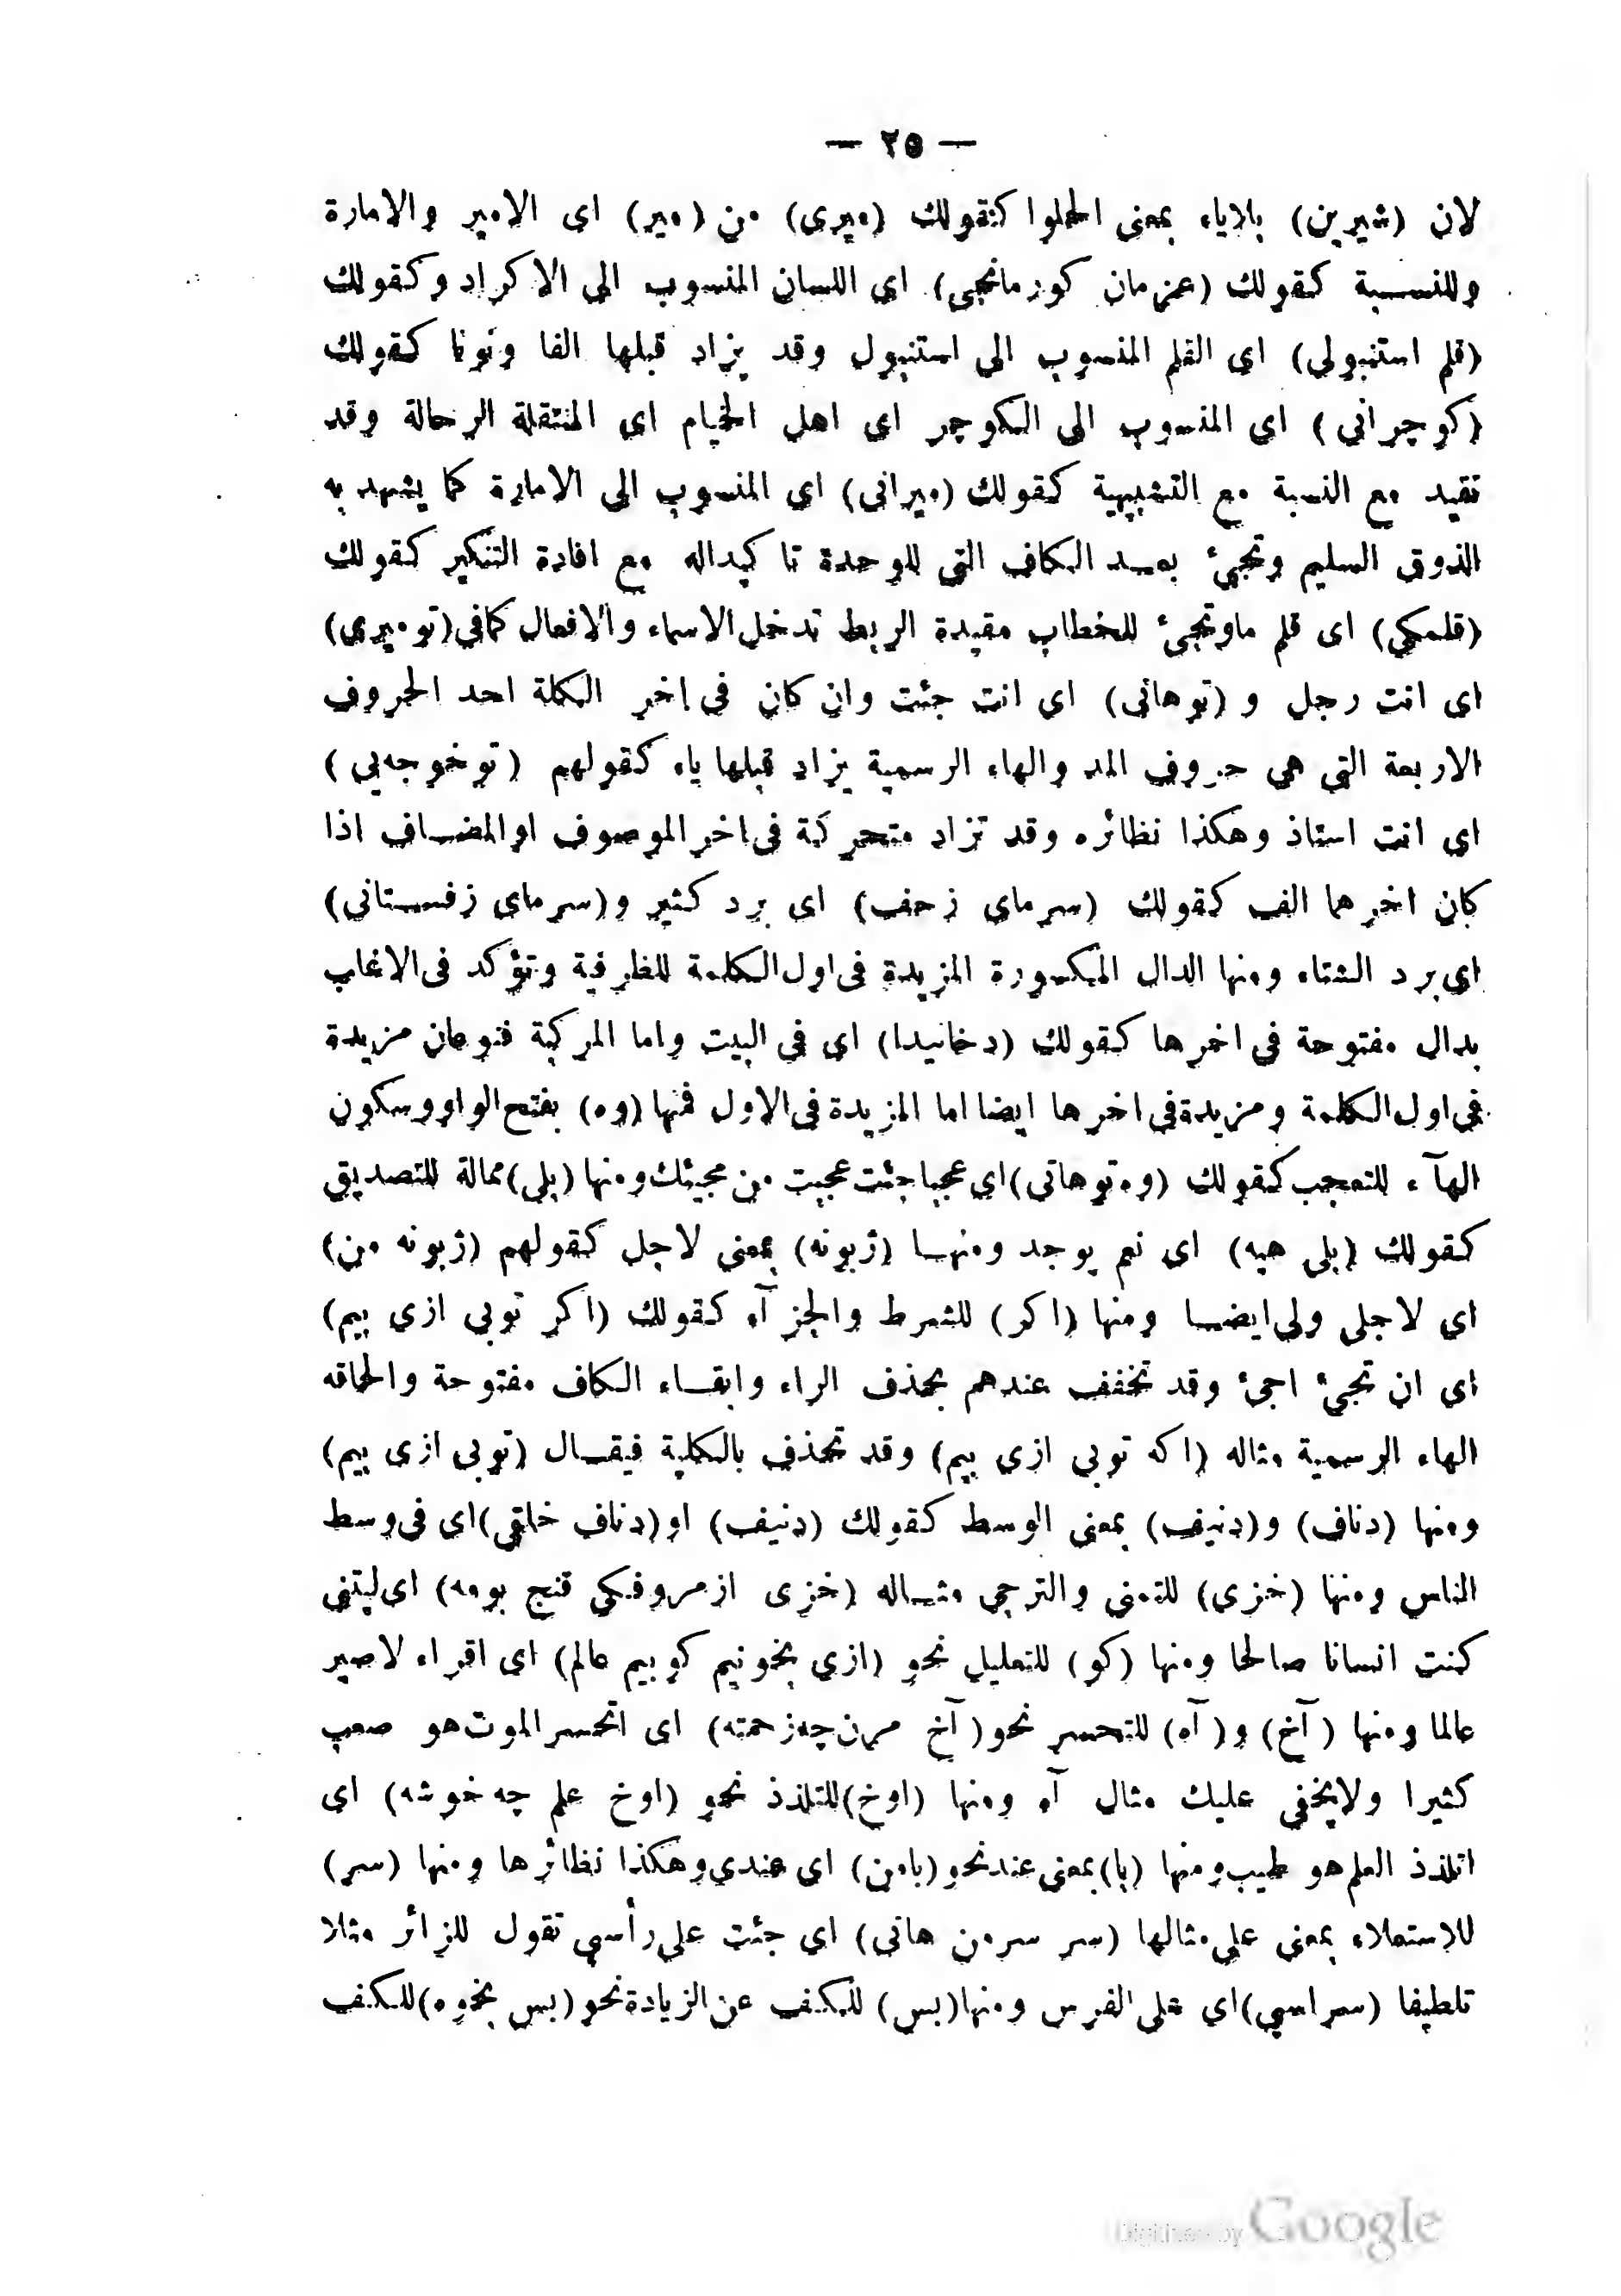 — ٢٥ —
لان (شيرين) بلاياء بمعنى الحلوا كقولك (ميرى) من (مير) اى الامير والامارة
وللنسبة كقولك (عزمان كورمانجى) اى اللسان المنسوب الى الاكراد وكقولك
(قلم استنبولى) اى القلم المنسوب الى استنبول وقد يزاد قبلها الفا ونونا كقولك
(كوچرانى) اى المنسوب الى الكوچر اى اهل الخيام اى المنتقلة الرحالة وقد
تفيد مع النسبة مع التشبيهية كقولك (ميرانى) اى المنسوب الى الامارة كما يشهد به
الذوق السليم وتجىٔ بعد الكاف التى للوحدة تا كيداله مع افادة التنكير كقولك
(قلمكى) اى قلم ماوتجىٔ للخطاب مفيدة الربط تدخل الاسماء والافعال كمافى(توميرى)
اى انت رجل و (توهاتى) اى انت جئت وان كان فى اخر الكلة احد الحروف
الاربعة التى هى حروف المد والهاء الرسمية يزاد قبلها ياء كقولهم (توخوجه‌يى)
اى انت استاذ وهكذا نظائره وقد تزاد متحركة فى اخر الموصوف اوالمضاف اذا
كان اخرهما الف كقولك (سرماى زحف) اى برد كثير و(سرماى زفستانى)
اى برد الشتاء ومنها الدال المكسورة المزيدة فى اول الكلمة للظرفية وتؤكد فى الاغاب
بدال مفتوحة فى اخرها كقولك (دخانيدا) اى فى البيت واما المركبة فنوعان مزيدة
فى اول الكلمة ومزيدة فى اخرها ايضا اما المزيدة فى الاول فمنها (وه) بفتح الواو وسكون
الهآء للتعجب كقولك (وه توهاتى) اى عجبا جئت عجبت من مجيئك ومنها (بلى) ممالة للتصديق
كقولك (بلى هيه) اى نعم يوجد ومنهـا (ژبونه) بمعنى لاجل كقولهم (ژبونه من)
اى لاجلى ولى ايضـا ومنها (اكر) للشرط والجزآء كقولك (اكر توبى ازى بيم)
اى ان تجىٔ اجىٔ وقد تخفف عندهم بحذف الراء وابقـاء الكاف مفتوحة والحاقه
الهاء الرسمية مثاله (اكه توبى ازى بيم) وقد تحذف بالكلية فيقـال (توبى ازى بيم)
ومنها (دناف) و(دنيف) بمعنى الوسط كقولك (دنيف) او(دناف خلقى) اى فى وسط
الناس ومنها (خزى) للتمنى والترجى مثـاله (خزى ازمروفكى قنج بومه) اى ليتنى
كنت انسانا صالحا ومنها (كو) للتعليل نحو (ازى بخونيم كوبيم عالم) اى اقراء لاصير
عالما ومنها (آخ) و(آه) للتحسر نحو(آخ مرن چه‌زحمته) اى اتحسر الموت هو صعب
كثيرا ولايخفى عليك مثال آه ومنها (اوخ)للتلذذ نحو (اوخ علم چه خوشه) اى
اتلذذ العلم هو طيب ومنها (با) بمعنى عند نحو(بامن) اى عندى وهكذا نظائرها ومنها (سر)
للاستعلاء بمعنى على مثالها (سر سرمن هاتى) اى جئت على رأسى تقول للزائر مثلا
تلطيفا (سراسى) اى على الفرس ومنها(بس) للكف عن الزيادة نحو(بس بخوه) للكف
Digitized by Google